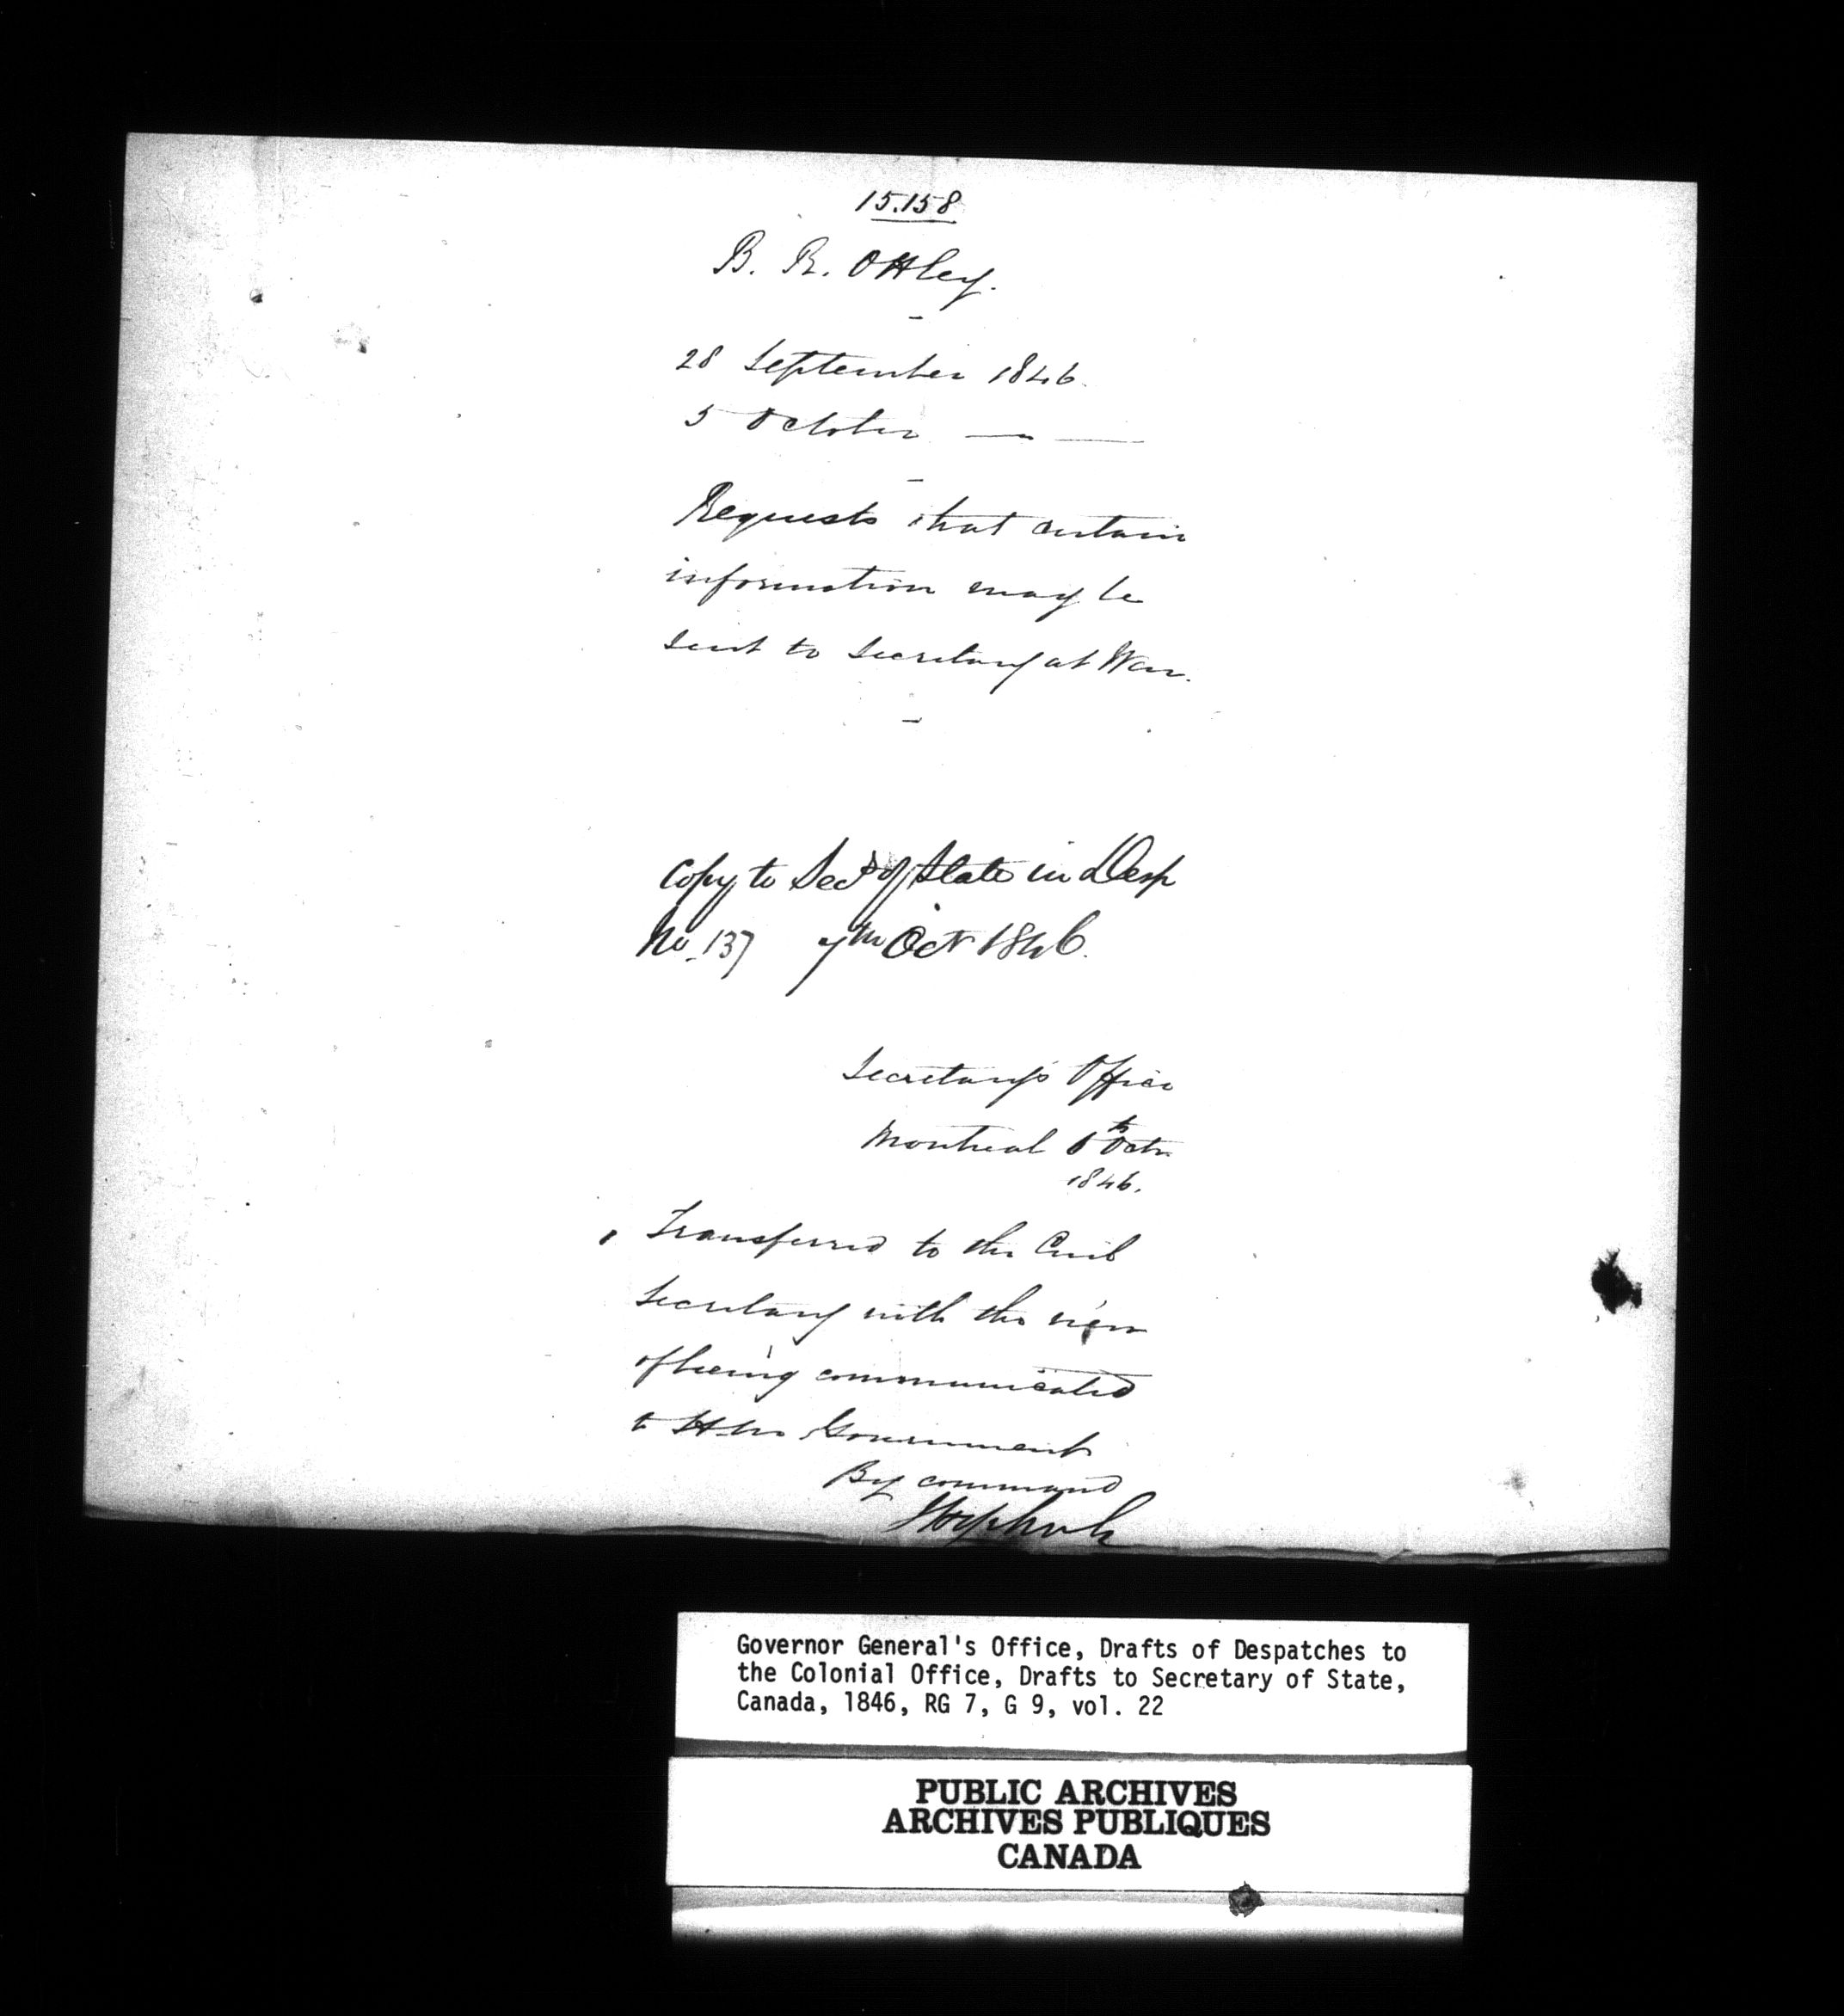 15.158
B. R. Ottley.
28 September 1846.
5 October — " —
Requests that certain
information may be
sent to Secretary at War.
Copy to Secy of State in Desp
No. 137 7th Oct 1846.
Secretary's Office
Montreal 6th Octr
1846.
Transferred to the Civil
Secretary with the view
of being communicated
to H. M. Government
By command
Governor General's Office, Drafts of Despatches to
the Colonial Office, Drafts to Secretary of State,
Canada, 1846, RG 7, G 9, vol. 22
PUBLIC ARCHIVES
ARCHIVES PUBLIQUES
CANADA